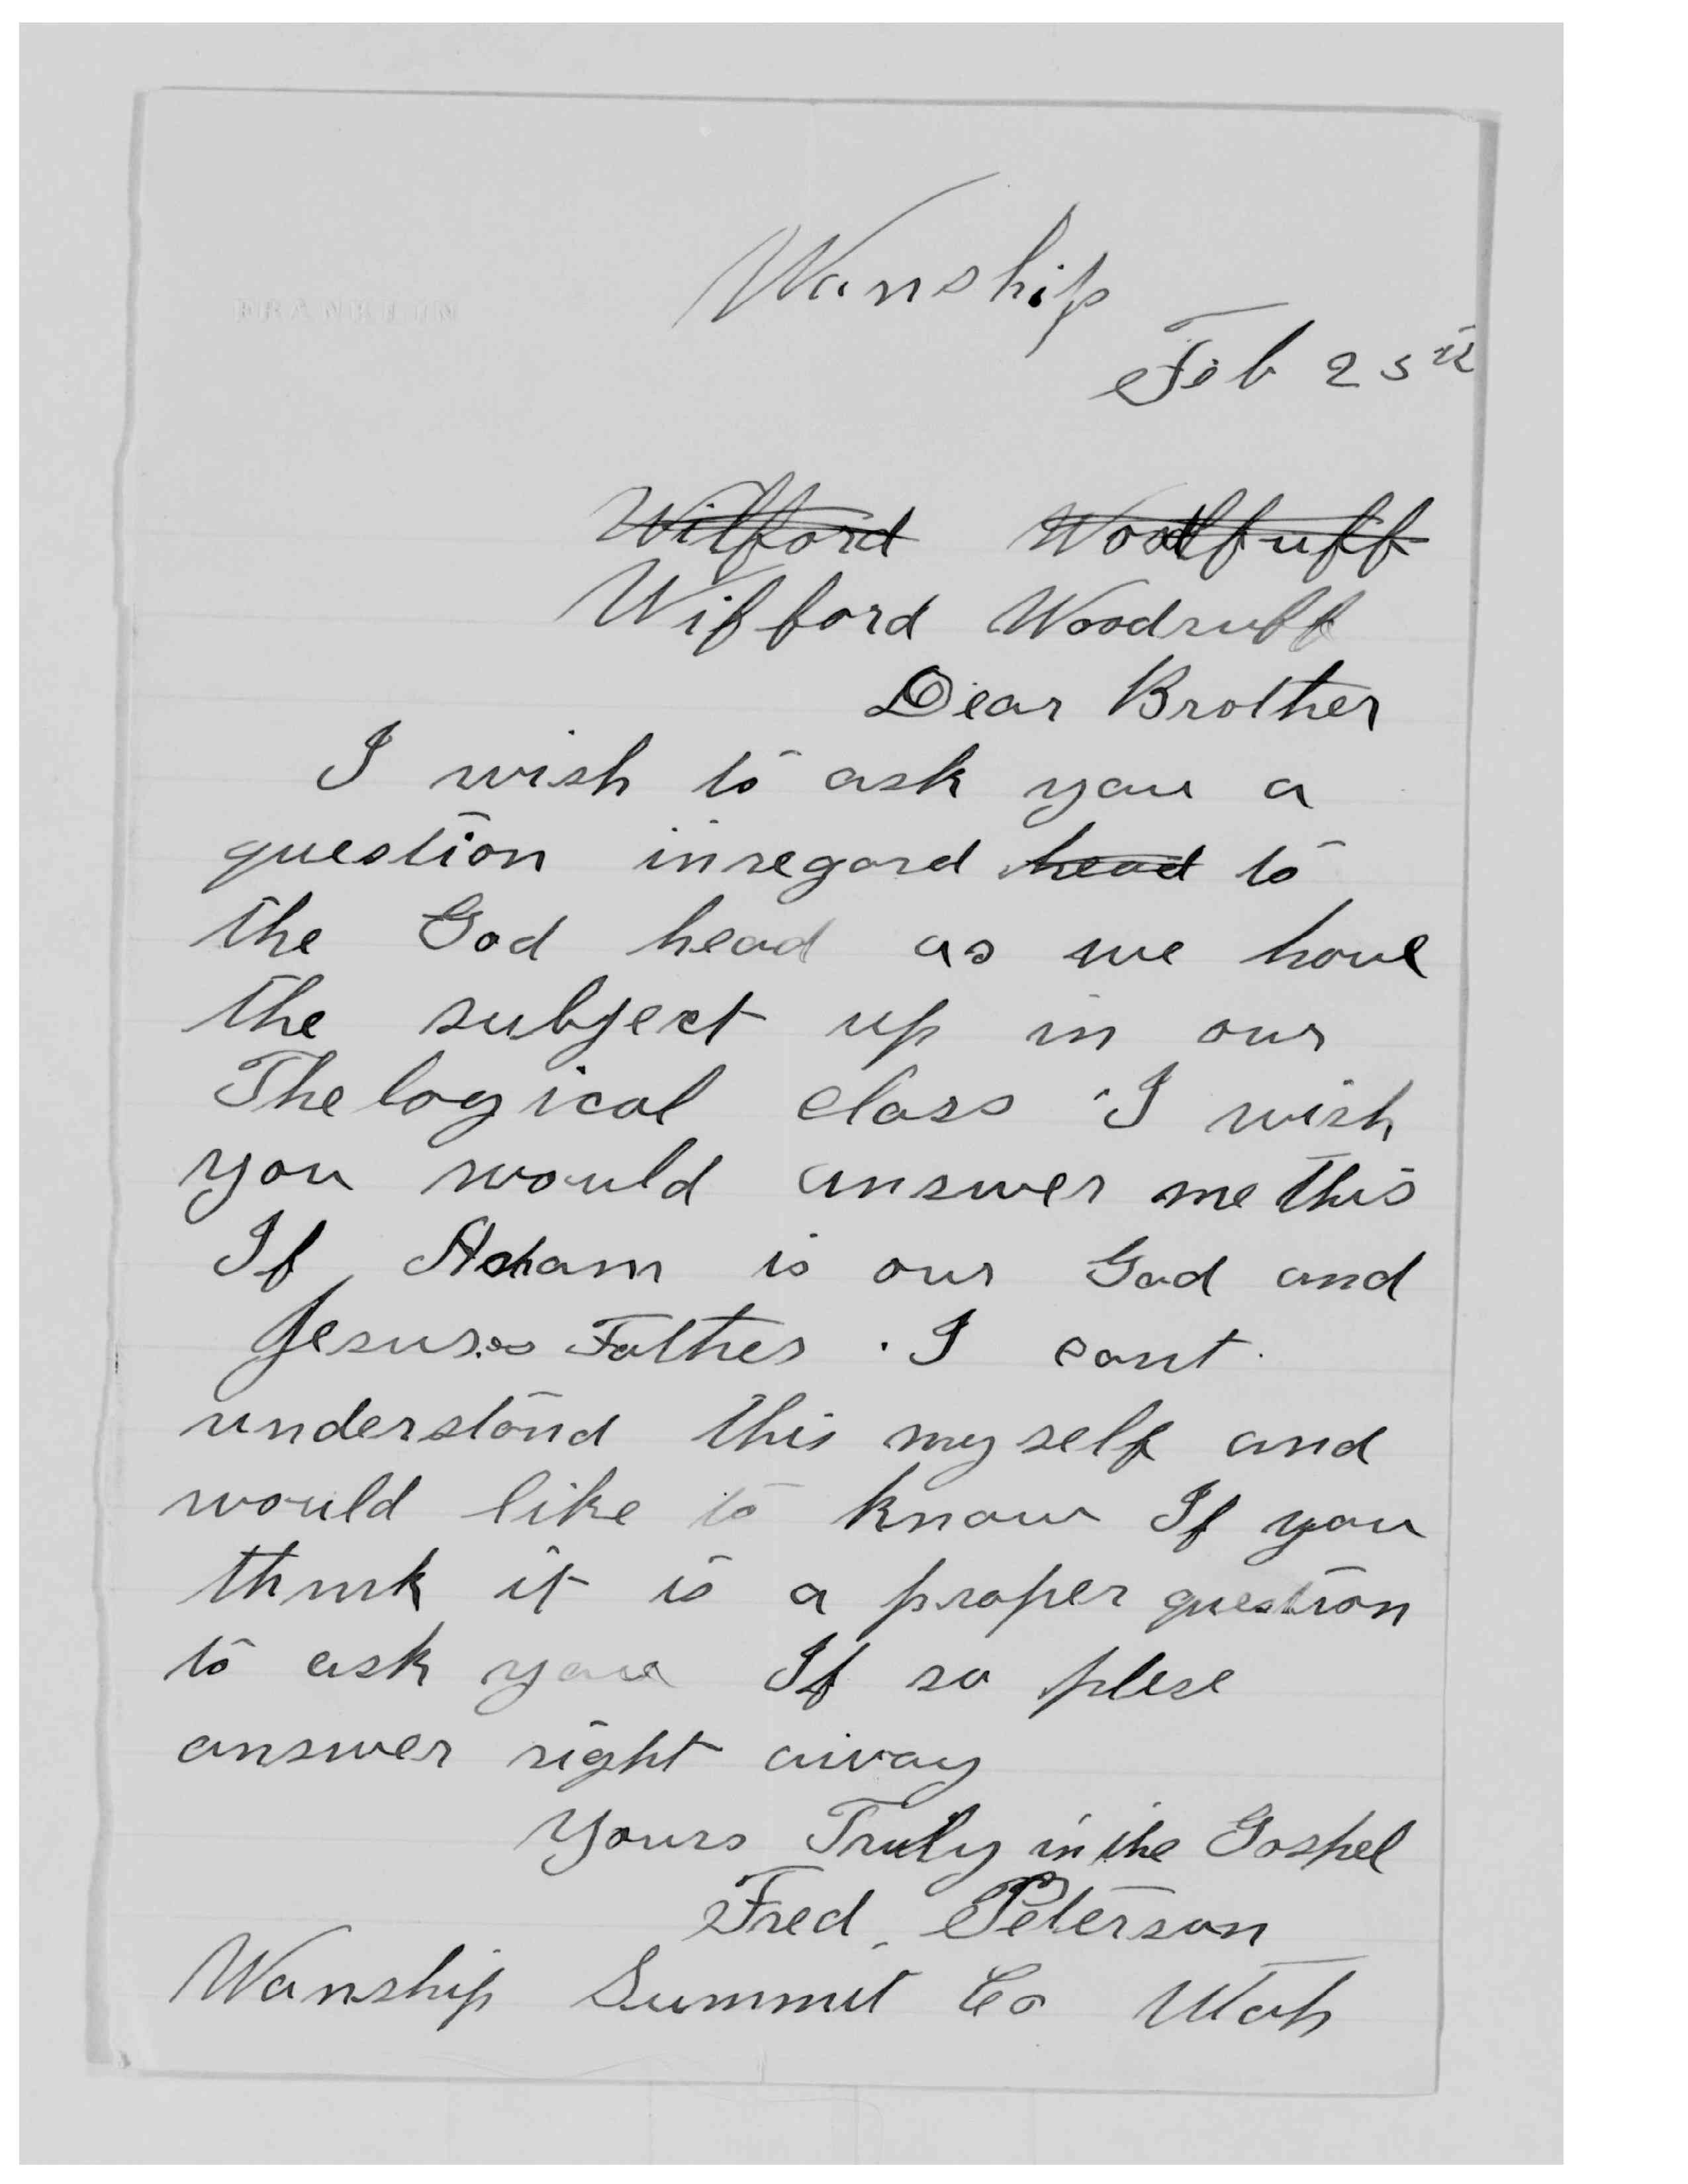 FRANKLIN
Wanship
Feb 25th
Wilford Woodfuff
Wifford Woodruff
Dear Brother
I wish to ask you a
question inregard head to
the God head as we have
the subject up in our
Thelogical class I wish
you would answer me this
If Adam is our God and
Jesuses Father . I cant
understand this my self and
would like to know If you
think it is a proper question
to ask you If so plese
answer right away
Yours Truly in the Gospel
Fred Peterson
Wanship Summit Co Utah